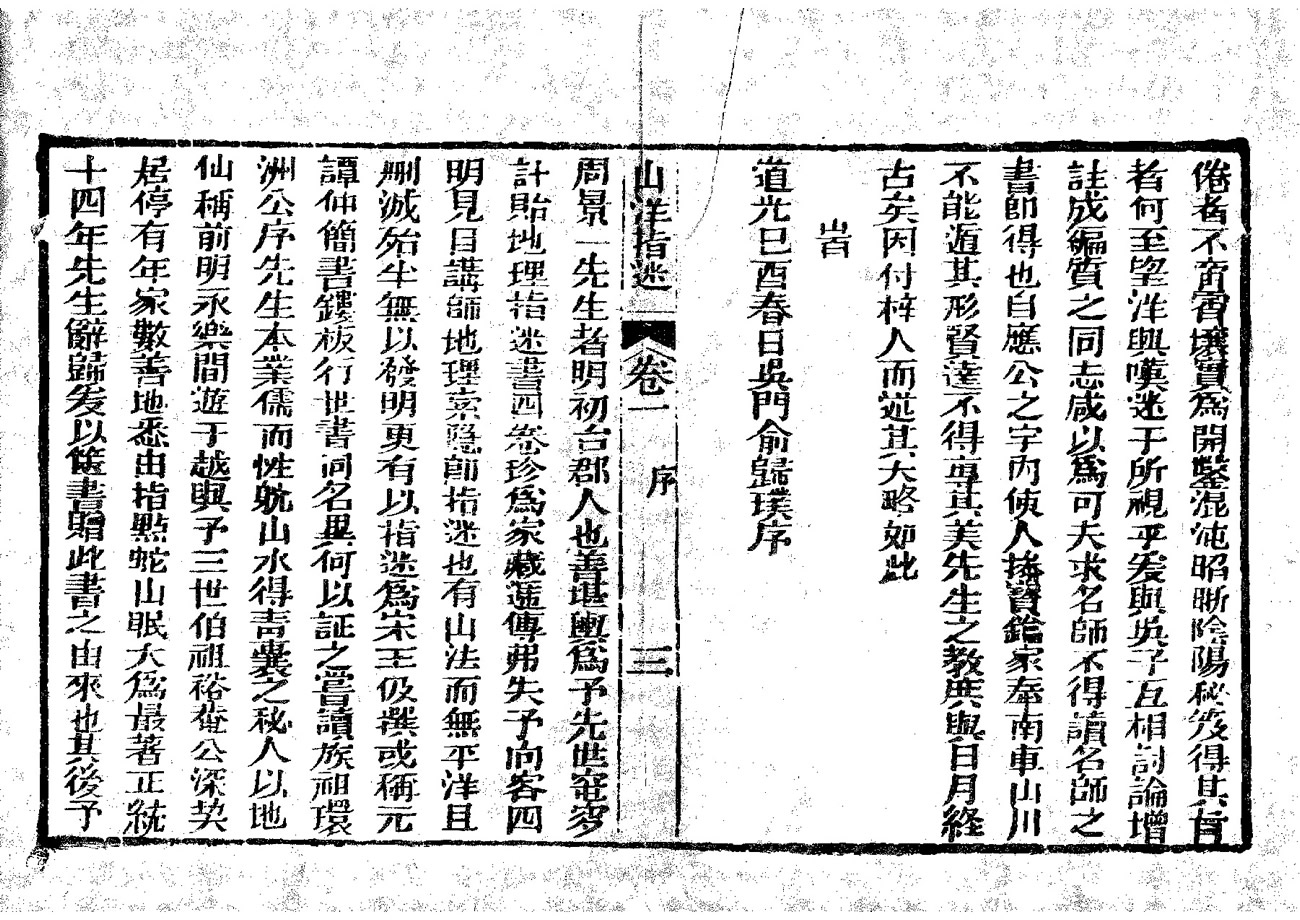 倦者不啻霄壤實爲開鑿混沌昭晰陰陽秘笈得其旨
者何至望洋興嘆迷于所視乎爰與吳子互相討論增
註成編質之同志咸以爲可夫求名師不得讀名師之
書師得也自應公之宇內使人擡寶鑰家奉南車山川
不能遁其形賢達不得專其美先生之教庶與日月經
古矣因付梓人而述其大略如此
峕
道光己酉春日吳門俞歸璞序
山洋指迷 卷一 序 三
周景一先生者明初台郡人也善堪輿爲予先世窀穸
計貽地理指迷書四卷珍爲家藏遞傳弗失予向客四
明見目講師地理索隱卽指迷也有山法而無平洋且
刪減殆半無以發明更有以指迷爲宋王伋撰或稱元
譚仲簡書鏤板行世書同名異何以証之嘗讀族祖環
洲公序先生本業儒而性躭山水得青囊之秘人以地
仙稱前明永樂間遊于越與予三世伯祖裕菴公深契
居停有年家數善地悉由指點蛇山眠犬爲最著正統
十四年先生辭歸爰以篋書贈此書之由來也其後予